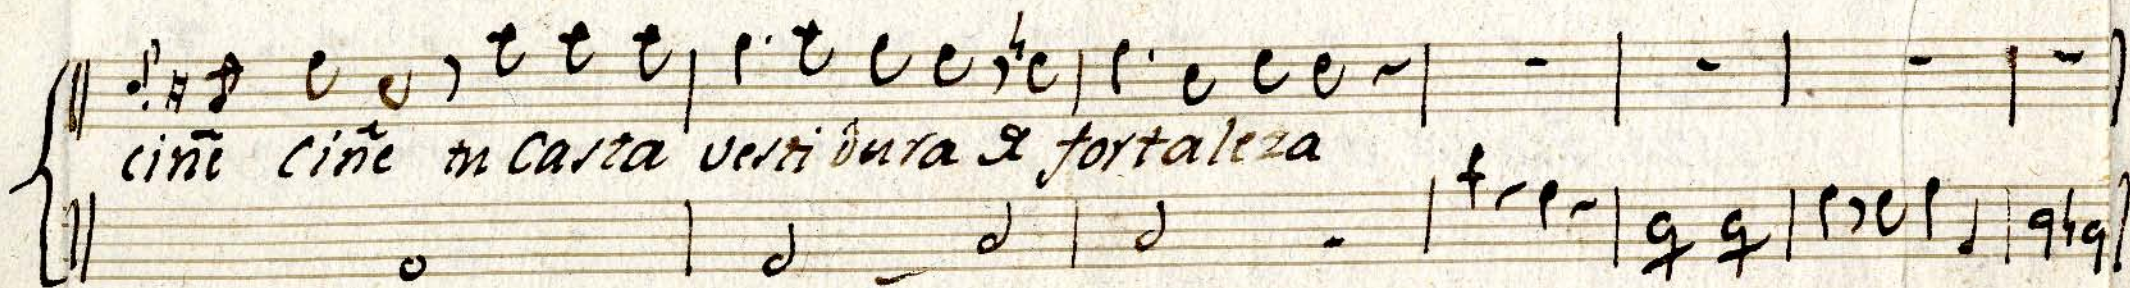 ciñe ciñe tu casta vestidura de fortaleza